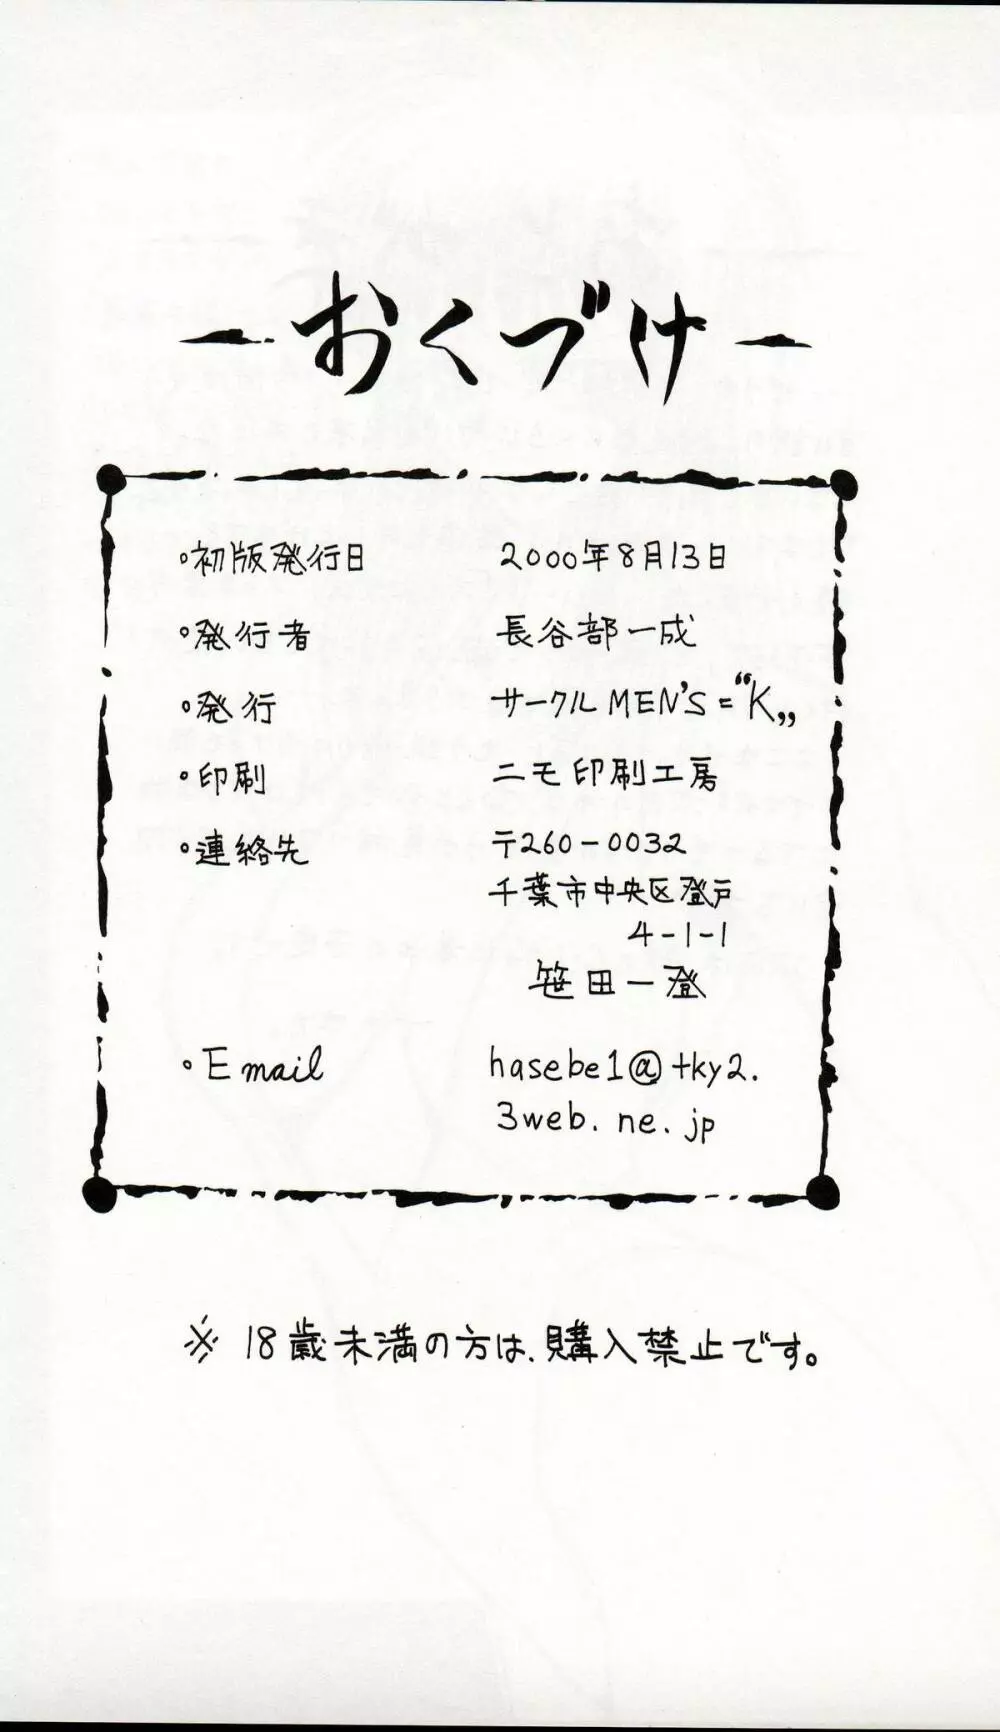 ー おくづけ ー
・初版発行日 2000年8月13日
・発行者 長谷部一成
・発行 サークルMEN'S="K„
・印刷 ニモ印刷工房
・連絡先 〒260-0032
千葉市中央区登戸
4-1-1
笹田一登
・Email hasebe1@tky2.
3web.ne.jp
※ 18歳未満の方は、購入禁止です。